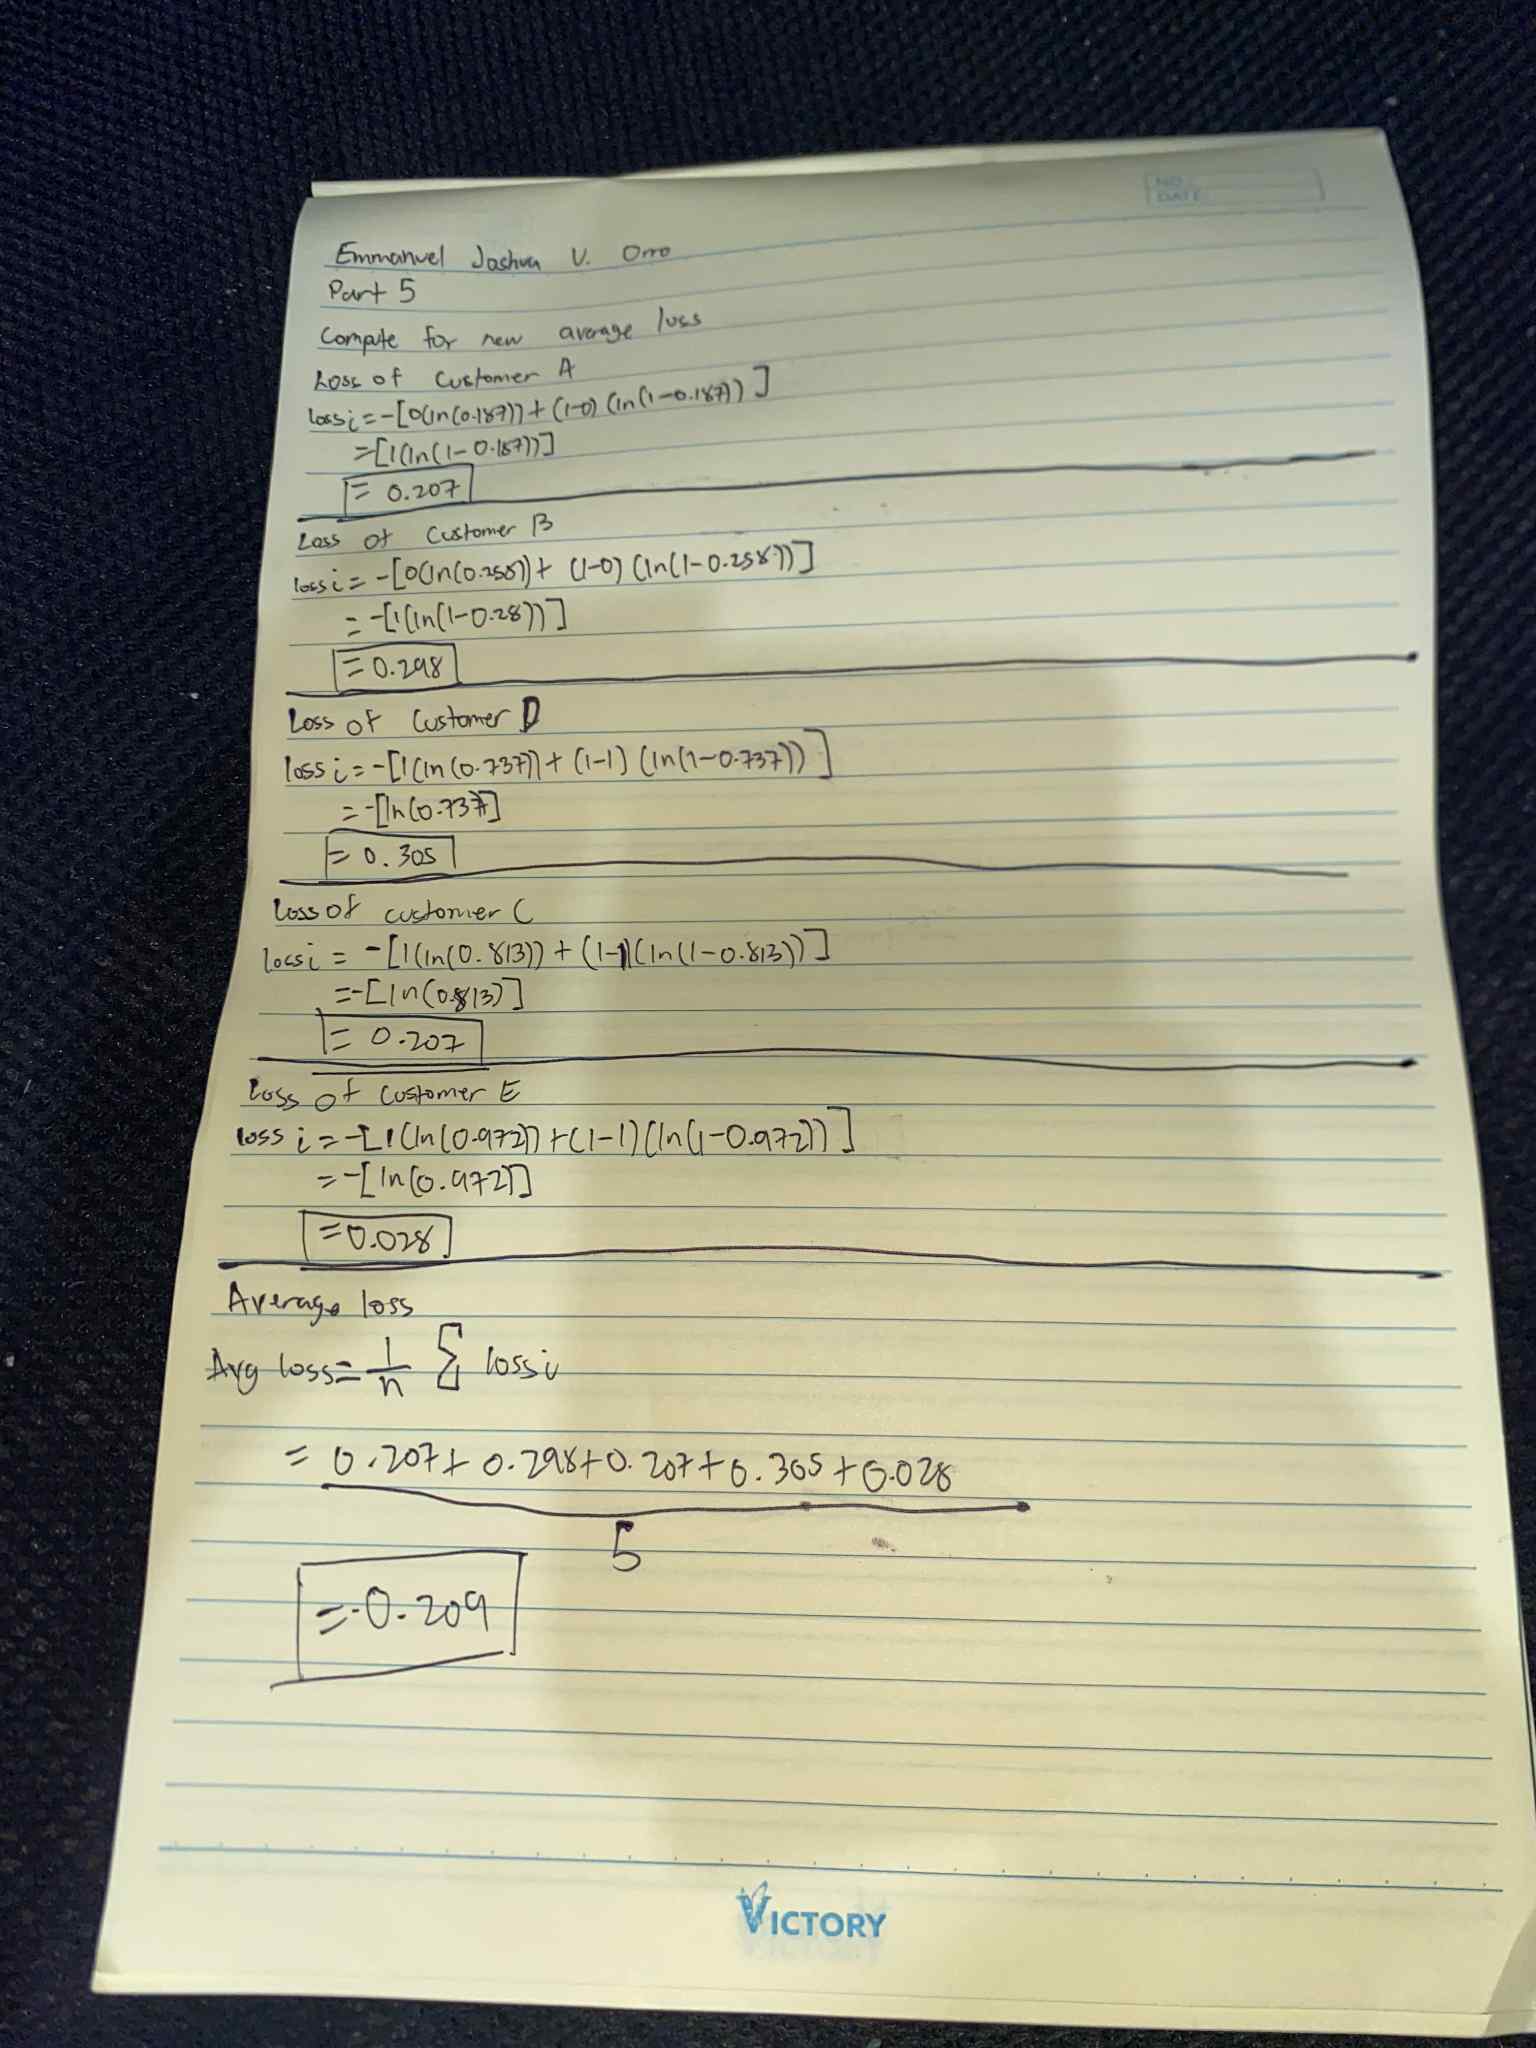 NO.
DATE
Emmanuel Joshua V. Orro
Part 5
Compute for new average loss
Loss of Customer A
loss i = -[0(ln(0.187)) + (1-0) (ln(1-0.187))]
=[1(ln(1-0.187))]
= 0.207
Loss of Customer B
loss i = -[0(ln(0.258)) + (1-0) (ln(1-0.258))]
= -[1(ln(1-0.28))]
= 0.298
Loss of Customer D
loss i = -[1(ln(0.737)) + (1-1) (ln(1-0.737))]
= -[ln(0.737)]
= 0.305
Loss of customer C
loss i = -[1(ln(0.813)) + (1-1)(ln(1-0.813))]
=-[ln(0.813)]
= 0.207
Loss of Customer E
loss i = -[1(ln(0.972)) + (1-1)(ln(1-0.972))]
= -[ln(0.972)]
= 0.028
Average loss
Avg loss = 1/n Σ loss i
= 0.207 + 0.298 + 0.207 + 0.305 + 0.028
5
= 0.209
VICTORY